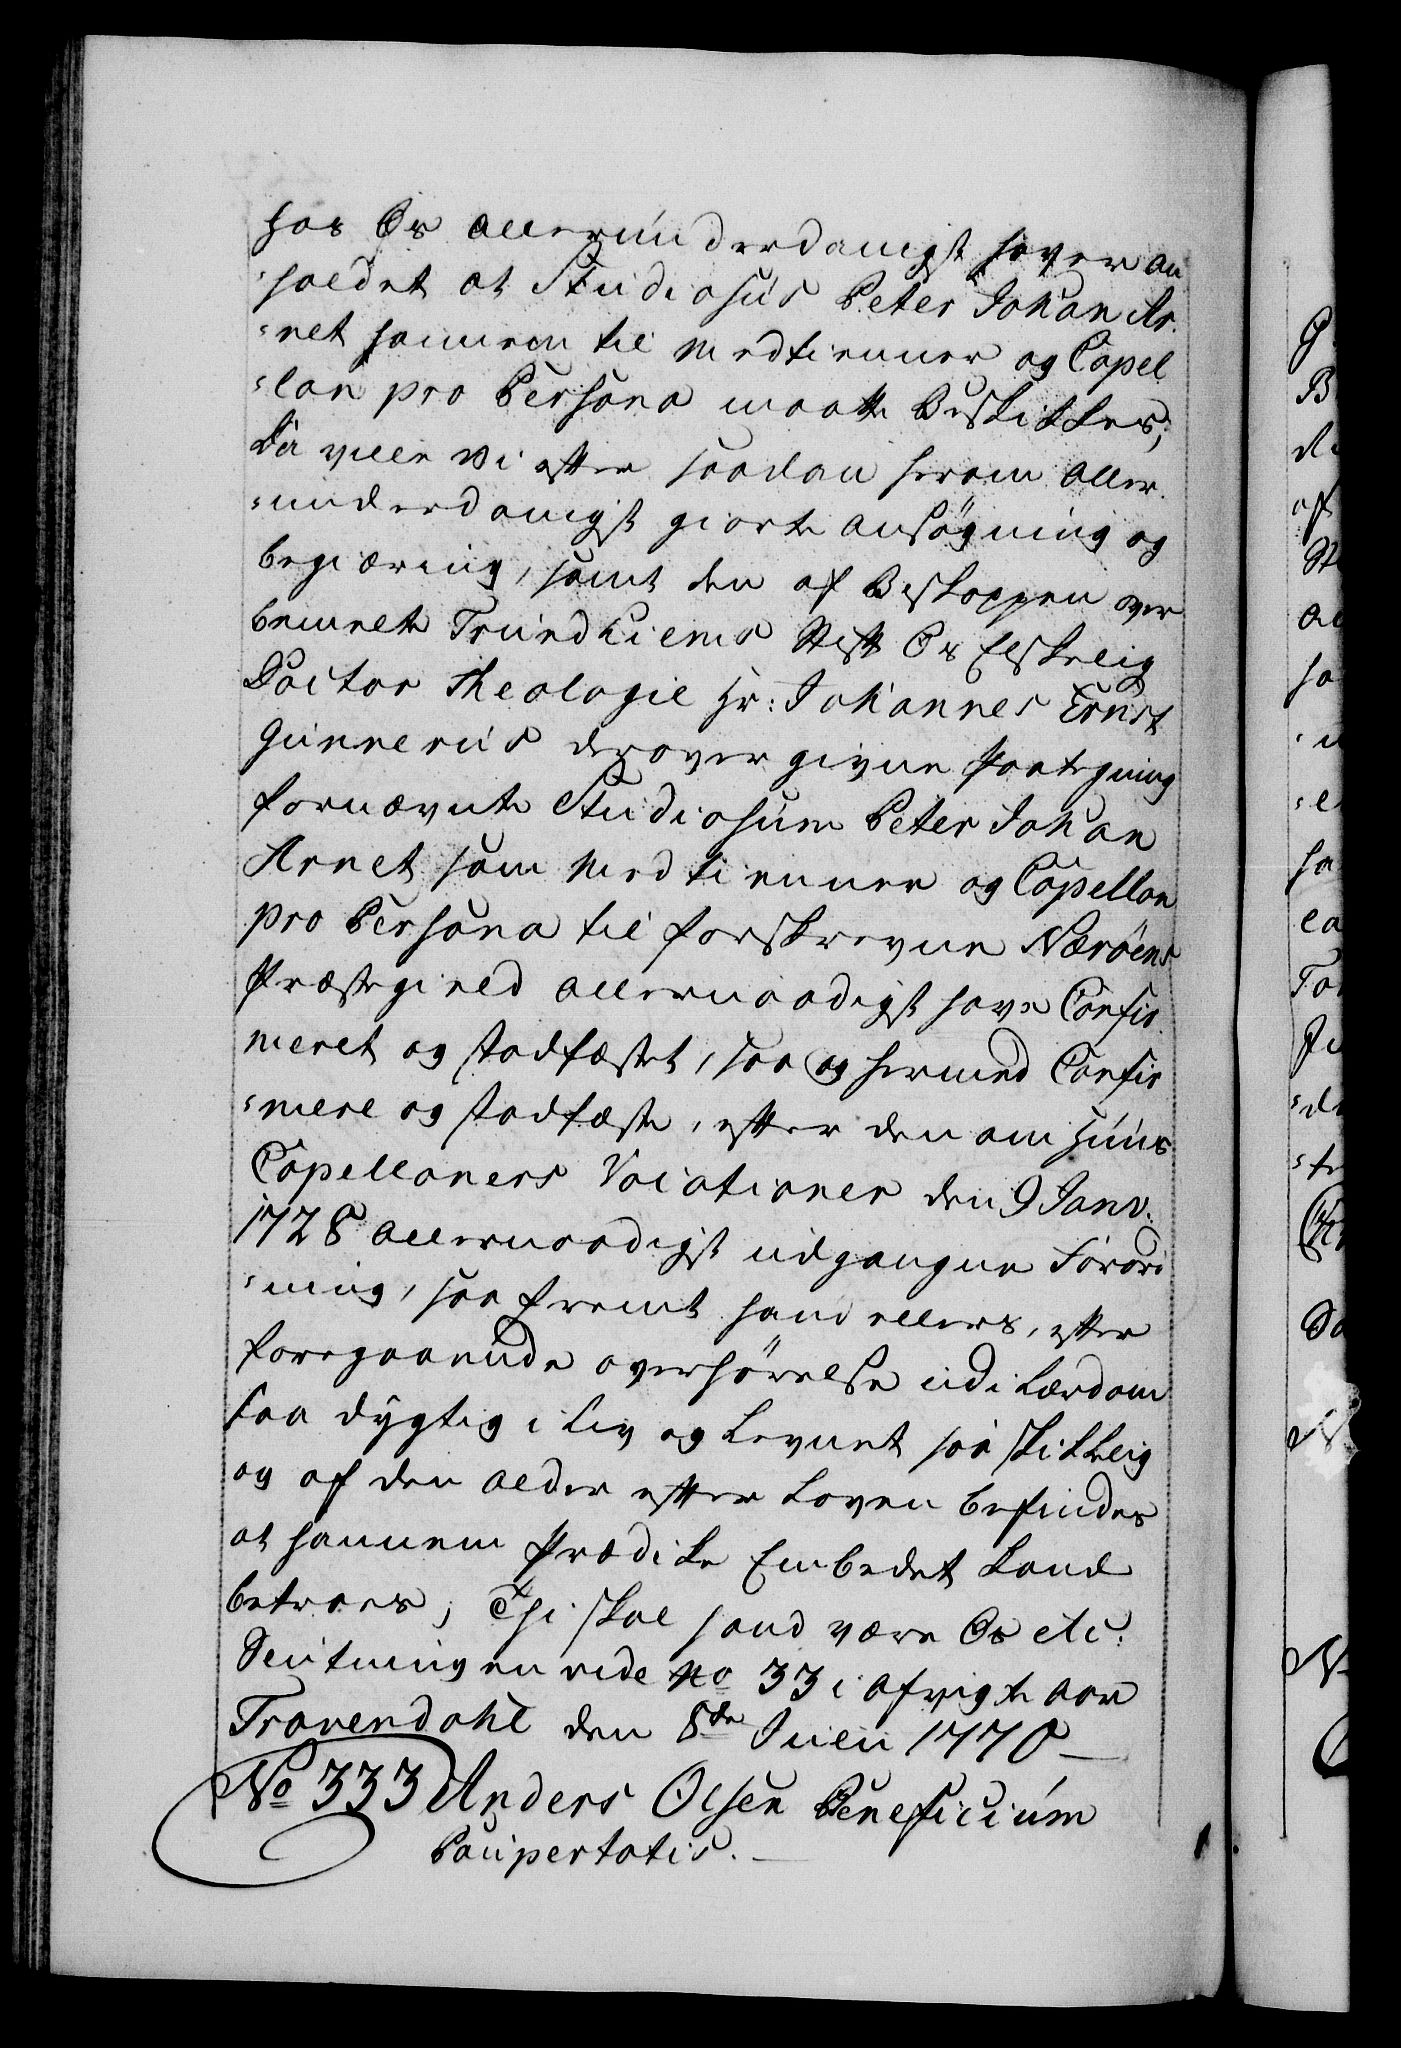 hos Os allerunderdanigst haver an
holdet at Studiosus Peter Johan Ar-
=net hannem til Medtienner og Capel
=lan pro Persona maatte beskikkes,
Da ville Vi efter saadan herom aller
=underdanigst giorte ansøgning og
begiæring, samt den af Biskoppen over
bemelte Trundhiems Stift Os Elskelig
Doctor Theologiæ Hr: Johannes Ernst
Gunnerus derover givne Paategning
fornævnte Studiosum Peter Johan
Arnet som Medtienner og Capellan
pro Persona til forskrevne Nærøens
Præstegield allernaadigst have Confir
meret og stadfæstet, saa og hermed Confir
=mere og stadfæste, efter den om Huus
Capellaners Vocationer den 9 Janv:
1728 allernaadigst udgangne Forord
=ning, saa fremt hand ellers, efter
foregaaende overhørelse udi Lærdom
saa dygtig i Liv og Levnet saa skikkelig
og af den alder efter Loven befindes
at hannem Prædike Embedet kand
betroes; Thi skal hand være Os etc:
Slutningen vide No 33 i afvigte aar
Travendahl den 8de Julii 1770
No 333 Anders Olsen Beneficium
Paupertatis.